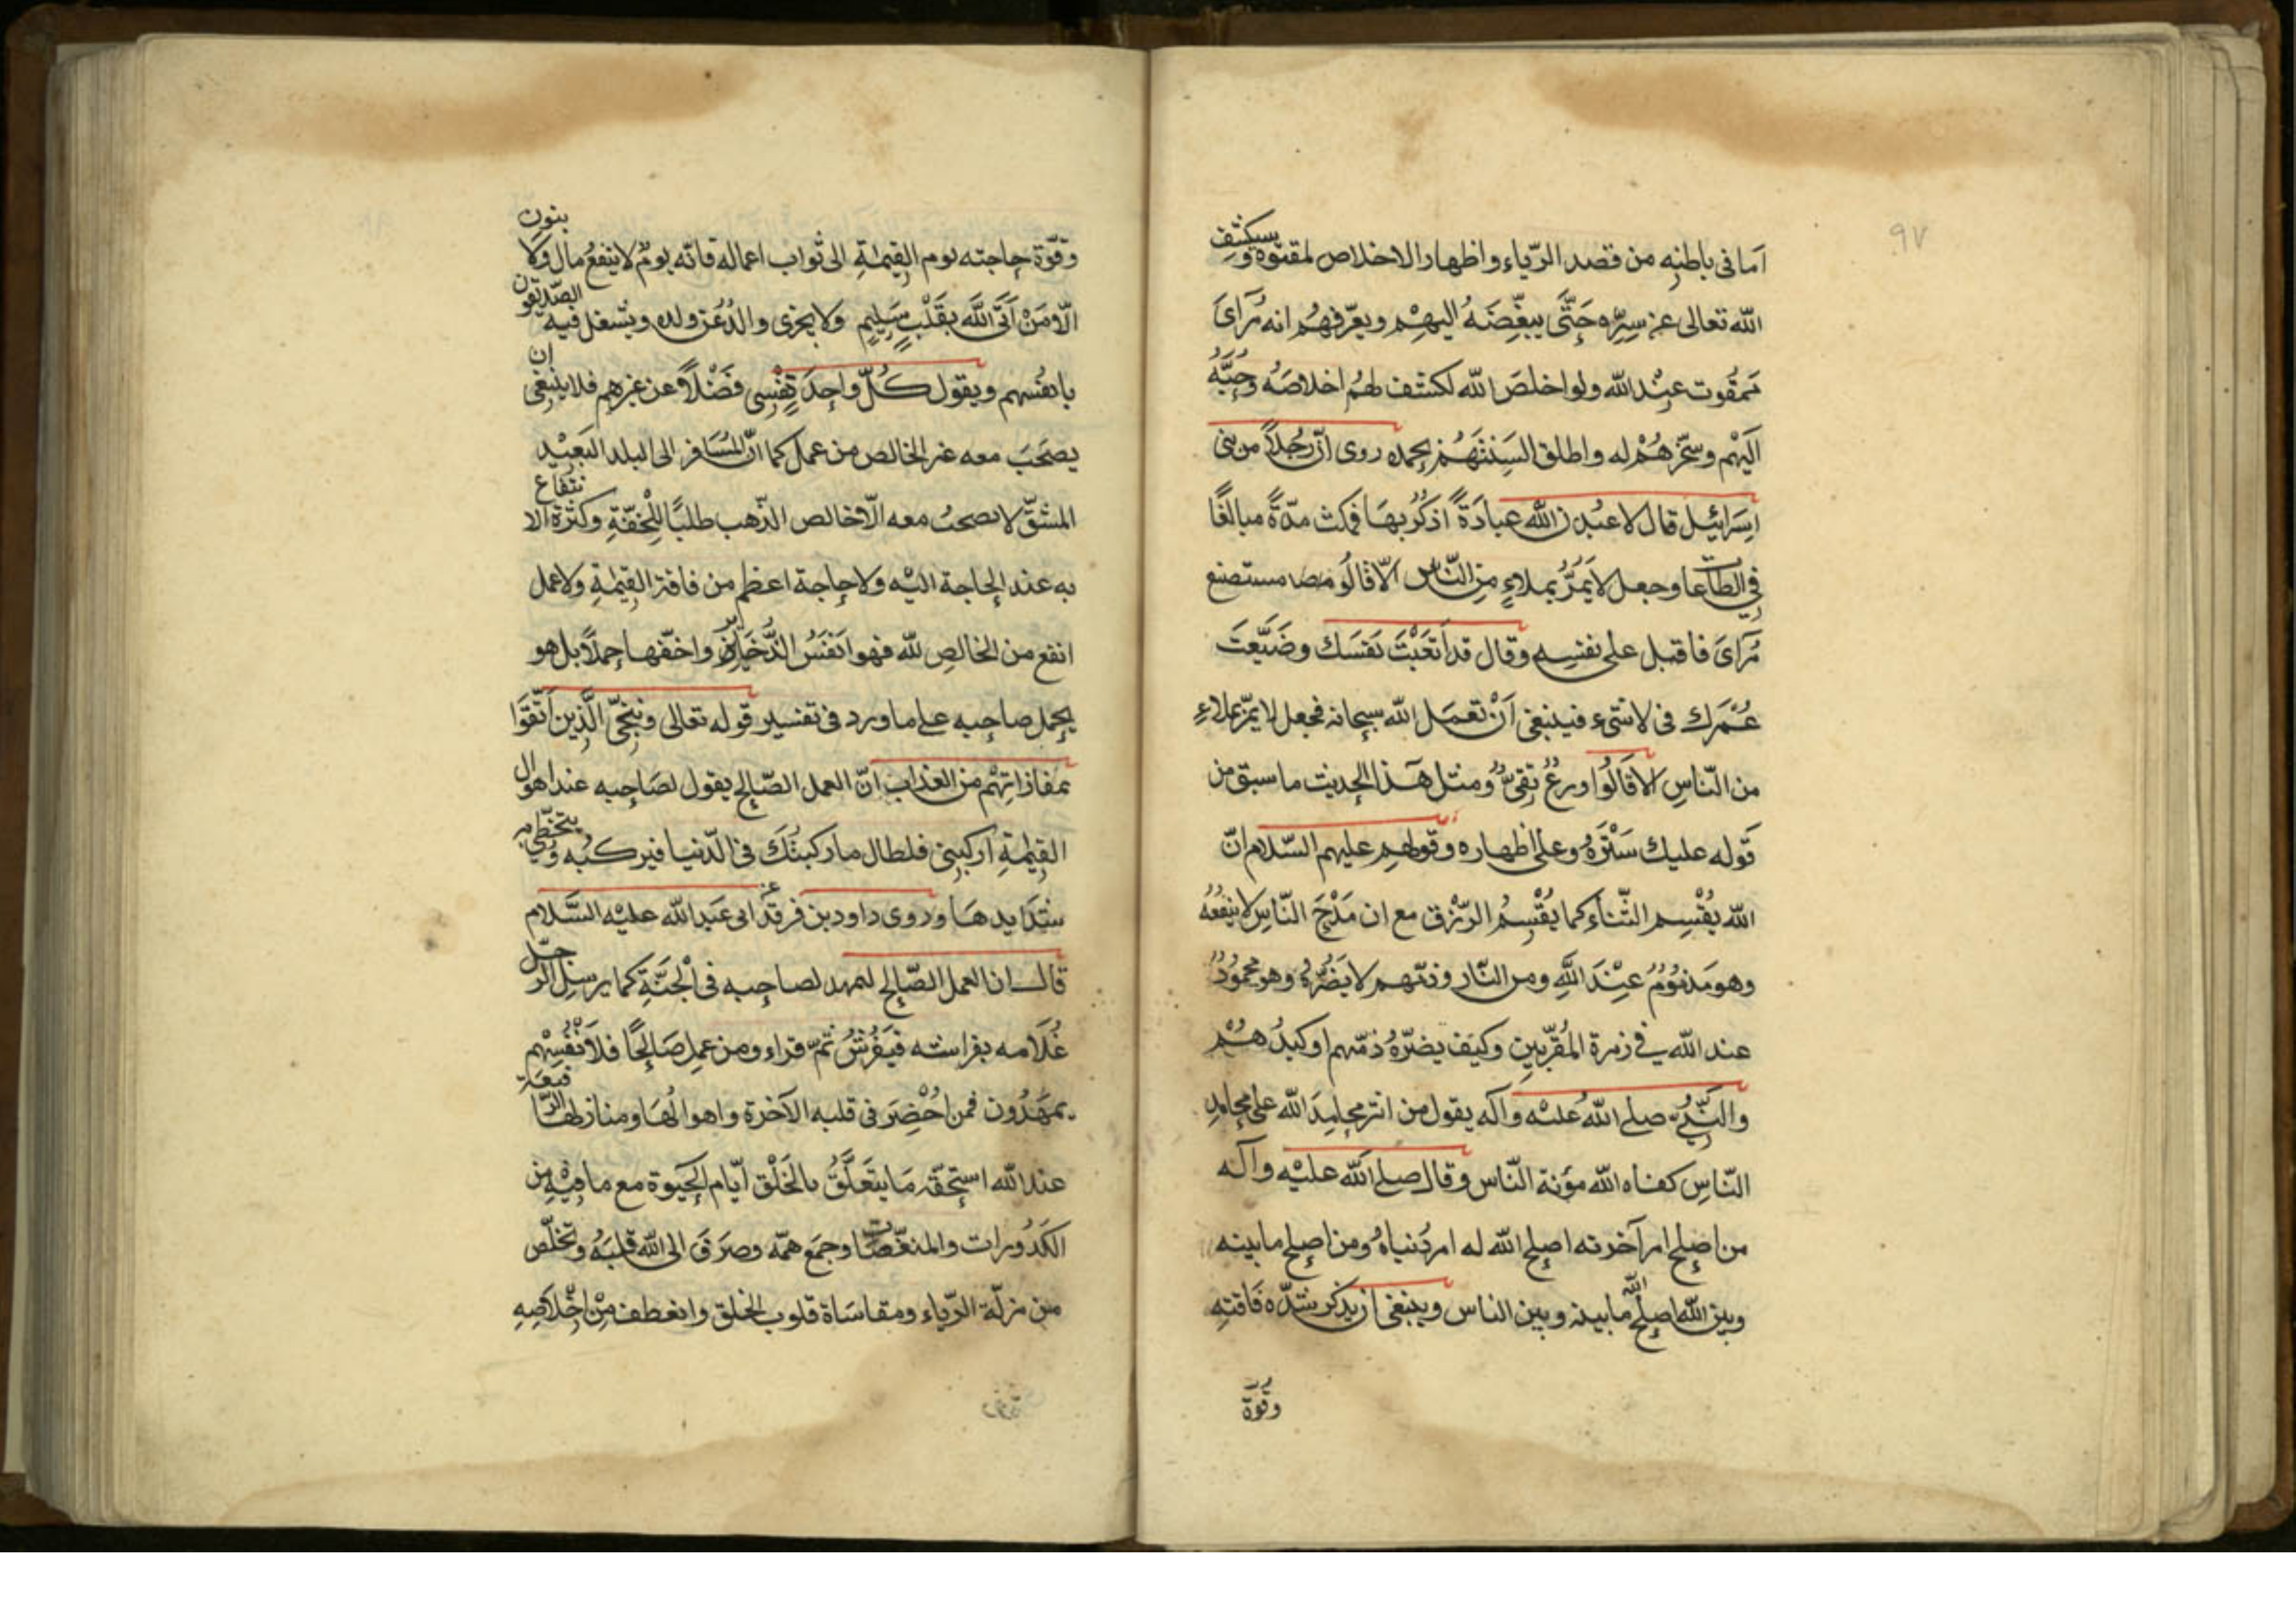 ٩٧
اما فى باطنِه من قصد الرّياء واظهار الاخلاص لمقتوه وسيكشِف
الله تعالى عن سِرِّه حَتَّى يبغِّضَهُ اليهِمْ ويعرّفهُم انه مُرَاىَ
مَمقُوت عِنْد الله ولو اخلصَ لله لكشف لهُم اخلاصَهُ وحَبَّبَهُ
اَليْهم وسخّرهُمْ له واطلق السِنَتَهُمْ بحمده روى انّ رجُلاً من بنى
اِسرَائيل قال لاعبُدنّ الله عبادَةً اذكَرُ بهَا فمكث مدّةً مبالغًا
فِي الطّاعات وجعل لايَمُرُّ بملاءٍ مِن النّاسِ الّا قالُو متصنع
مُرَاىَ فاقبل على نفسِه وقال قد اَتعَبْتَ نَفسَك وضَيَّعتَ
عُمْرَك فى لاشىء فينبغى اَنْ تعمَل لله سبحانه فجعل لايمرّ بملاءٍ
من النّاسِ الا قالُوا ورعٌ تقىٌّ ومثل هَذا الحديث ما سبق من
قَوله عليك سَتْرَهُ وعلى اظهاره وقولهم عليهم السّلام انّ
الله يُقْسِم الثّناءَ كما يُقْسِمُ الرّزق مع ان مَدْحَ النّاسِ لا ينفعُهُ
وهو مَذمُومٌ عِنْدَ اللهِ ومن النّار وذمّهم لا يَضُرّهُ وهو محمُودٌ
عند الله فى زمرة المُقرّبين وكيَف يضرّهُ ذمّهم او كيدُهُمْ
والنّبىُّ صلى اللهُ عليْه وآله يقول من اثر محامِدَ الله على محامِدِ
النّاسِ كفاه الله مؤنة النّاس وقال صلى الله عليْه وآله
من اصلح امر آخرته اصلح الله له امر دُنياهُ ومن اصلح ما بينه
وبين الله اصلح الله ما بينه وبين الناس وينبغى ان يذكر شدّه فَاقتهِ
وقُوّة
وقوّة حاجته يوم القيمَةِ الى ثواب اعماله فانّه يومٌ لا ينفعُ مال ولا بنون
الّا مَنْ اَتَى اللهَ بقَلْبٍ سَلِيمٍ وَلا يجزى والدٌ عَن ولده ويشغل فيه الصّديقون
بانفُسهم ويقول كُلّ واحِدٍ نَفْسِى فضْلاً عن غيرهِم فلا ينبغى ان
يصحَبَ معه غير الخالص من عمل كما انّ المُسَافر الى البلد البَعِيْدِ
المشقّ لا يصحبُ معه الّا خالص الذّهب طلبًا لِلْخفّةِ وكثرَة الانتفاع
به عند الحاجة اليْه ولا حاجة اعظم من فاقة القيمَةِ ولا عمل
انفع من الخالصِ لله فهو اَنفَسُ الذَّخاير واخفّها حِملاً بل هو
يحمل صاحبه على ما ورد فى تفسير قوله تعالى ونُنجّى الَّذِين اتّقَوا
بمفازاتِهْم من العذاب انّ العمل الصّالح يقول لصَاحِبه عند اهوال
القيمَةِ اَركبنى فلطال ما ركبتُكَ فى الدّنيا فيركبُه ويتخطّى به
شدَايدهَا وروى داود بن فرقد عن ابى عَبد الله عليْه السَّلام
قال ان العمل الصّالح ليمهد لصاحِبه فى الْجَنَّةِ كما يرسِل الرّجل
غُلَامه بفراشه فَيَفْرِشُ ثمّ قراء ومن عمِل صَالِحًا فلاَنْفُسِهْم
يمهَدُون فمن احُضِرَ فى قلبه الآخرَة واهوالُهَا ومنازلها الرّفيعَة
عند الله استحَقَر مَا يتَعَلَّقُ بالخَلْق اَيّام الحَيوة مع ما فيْهِ من
الكَدُورات والمنغّصات وجمَع همّه وصرَفَ الى الله قلبَهُ وتخلّص
من مزلّة الرّياء ومقاسَاة قلوب الخلق وانعطف مِنْ اِخْلاصِهِ